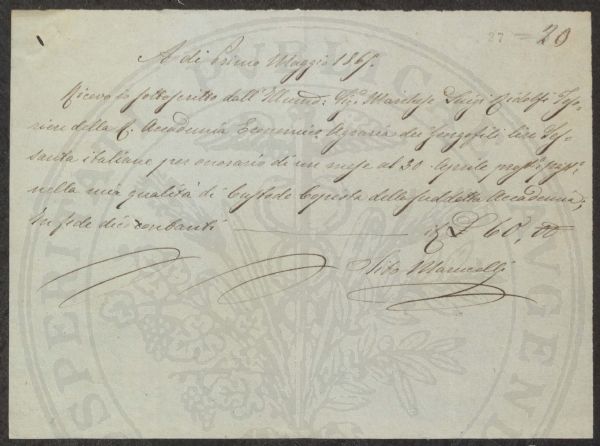 27 = 20
A dì Primo Maggio 1867.
Ricevo io sottoscritto dall' Illmo: Sig.e Marchese Luigi Ridolfi Teso-
riere della R. Accademia Economico Agraria dei Georgofili lire Ses-
santa italiane per onorario di un mese al 30 Aprile
nella mia qualità di Custode Copista della suddetta Accademia;
In fede dico contanti £ 60, 00
Tito Marucelli